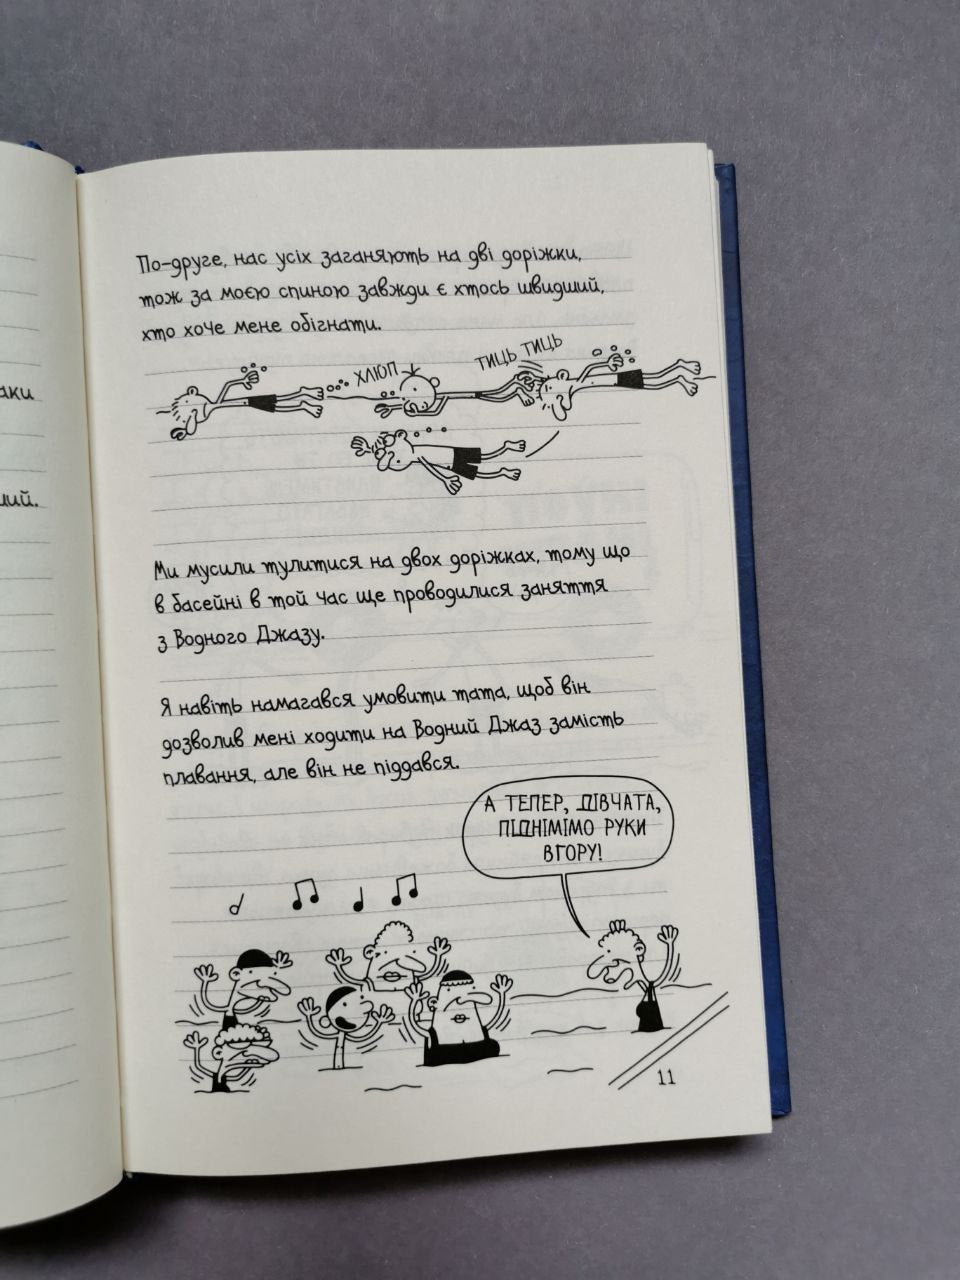 аки
лий.
По-друге, нас усіх заганяють на дві доріжки,
тож за моєю спиною завжди є хтось швидший,
хто хоче мене обігнати.
ХЛЮП
ТИЦЬ ТИЦЬ
Ми мусили тулитися на двох доріжках, тому що
в басейні в той час ще проводилися заняття
з Водного Джазу.
Я навіть намагався умовити тата, щоб він
дозволив мені ходити на Водний Джаз замість
плавання, але він не піддався.
А ТЕПЕР, ДІВЧАТА,
ПІДНІМІМО РУКИ
ВГОРУ!
11